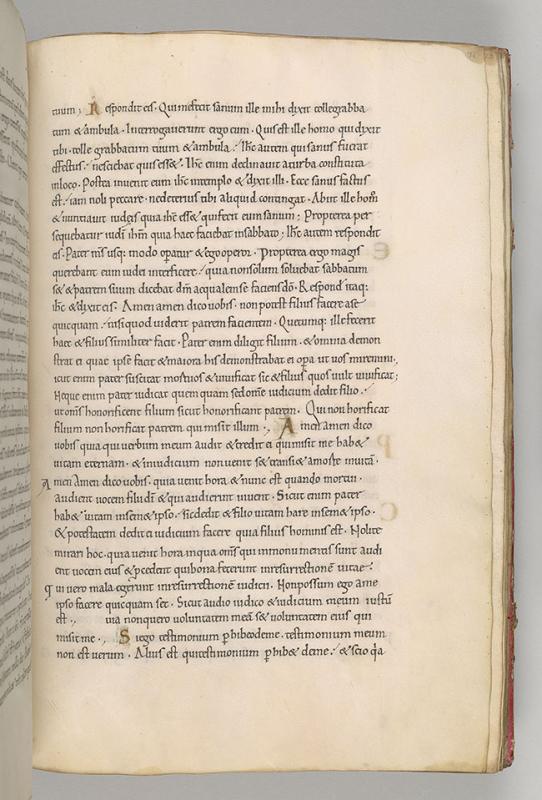 tuum; Respondit eis. Qui me fecit sanum ille mihi dixit tolle grabba
tum & ambula. Interrogaverunt ergo eum. Quis est ille homo qui dixit
tibi. tolle grabbatum tuum & ambula. Ihc autem qui sanus fuerat
effectus. nesciebat quis esse&. Ihc enim declinavit a turba constituta
in loco. Postea invenit eum ihc in templo & dixit illi. Ecce sanus factus
est. iam noli peccare. ne deterius tibi aliquid contingat. Abiit ille homo
& nuntiavit iudeis quia ihc esse& qui fecit eum sanum; Propterea per
sequebatur iudi ihm quia haec faciebat in sabbato; Ihc autem respondit
eis. Pater ms usq; modo operatur & ego operor. Propterea ergo magis
querebant eum iudei interficere. quia non solum solvebat sabbatum
sed & patrem suum dicebat dm aequalem se faciens do. Respondit itaq;
ihc & dixit eis. Amen amen dico vobis. non potest filius facere a se
quicquam. nisi quod viderit patrem facientem. Quecumq; ille fecerit
haec & filius similiter facit. Pater enim diligit filium. & omnia demon
strat ei quae ipse facit & maiora his demonstrabat ei opa. ut vos miremini.
icut enim pater suscitat mortuos & vivificat sic & filius quos vult vivificat;
Neque enim pater iudicat quemquam sed omne iudicium dedit filio.
ut oms honorificent filium sicut honorificant patrem. Qui non horificat
filium non horificat patrem qui misit illum. Amen amen dico
vobis quia qui verbum meum audit & credit ei qui misit me habe&
vitam eternam. & in iudicium non venit sed transi& a morte in vita.
Amen Amen dico vobis. quia venit hora & nunc est quando mortui
audient vocem filii di & qui audierint vivent. Sicut enim pater
habe& vitam in seme&ipso. sic dedit & filio vitam hare in seme&ipso.
& potestatem dedit ei iudicium facere quia filius hominis est. Nolite
mirari hoc. quia venit hora in qua oms qui in monumentis sunt audi
ent vocem eius & procedent qui bona fecerunt in resurrectione vitae.
qui vero mala egerunt in resurrectione iudicii. Non possum ego a me
ipso facere quicquam set. Sicut audio iudico & iudicium meum iustu
est. uia non quero voluntatem mea sed voluntatem eius qui
misit me. Si ego testimonium phibeo de me. testimonium meum
non est verum. Alius est qui testimonium phib& de me. & scio qa